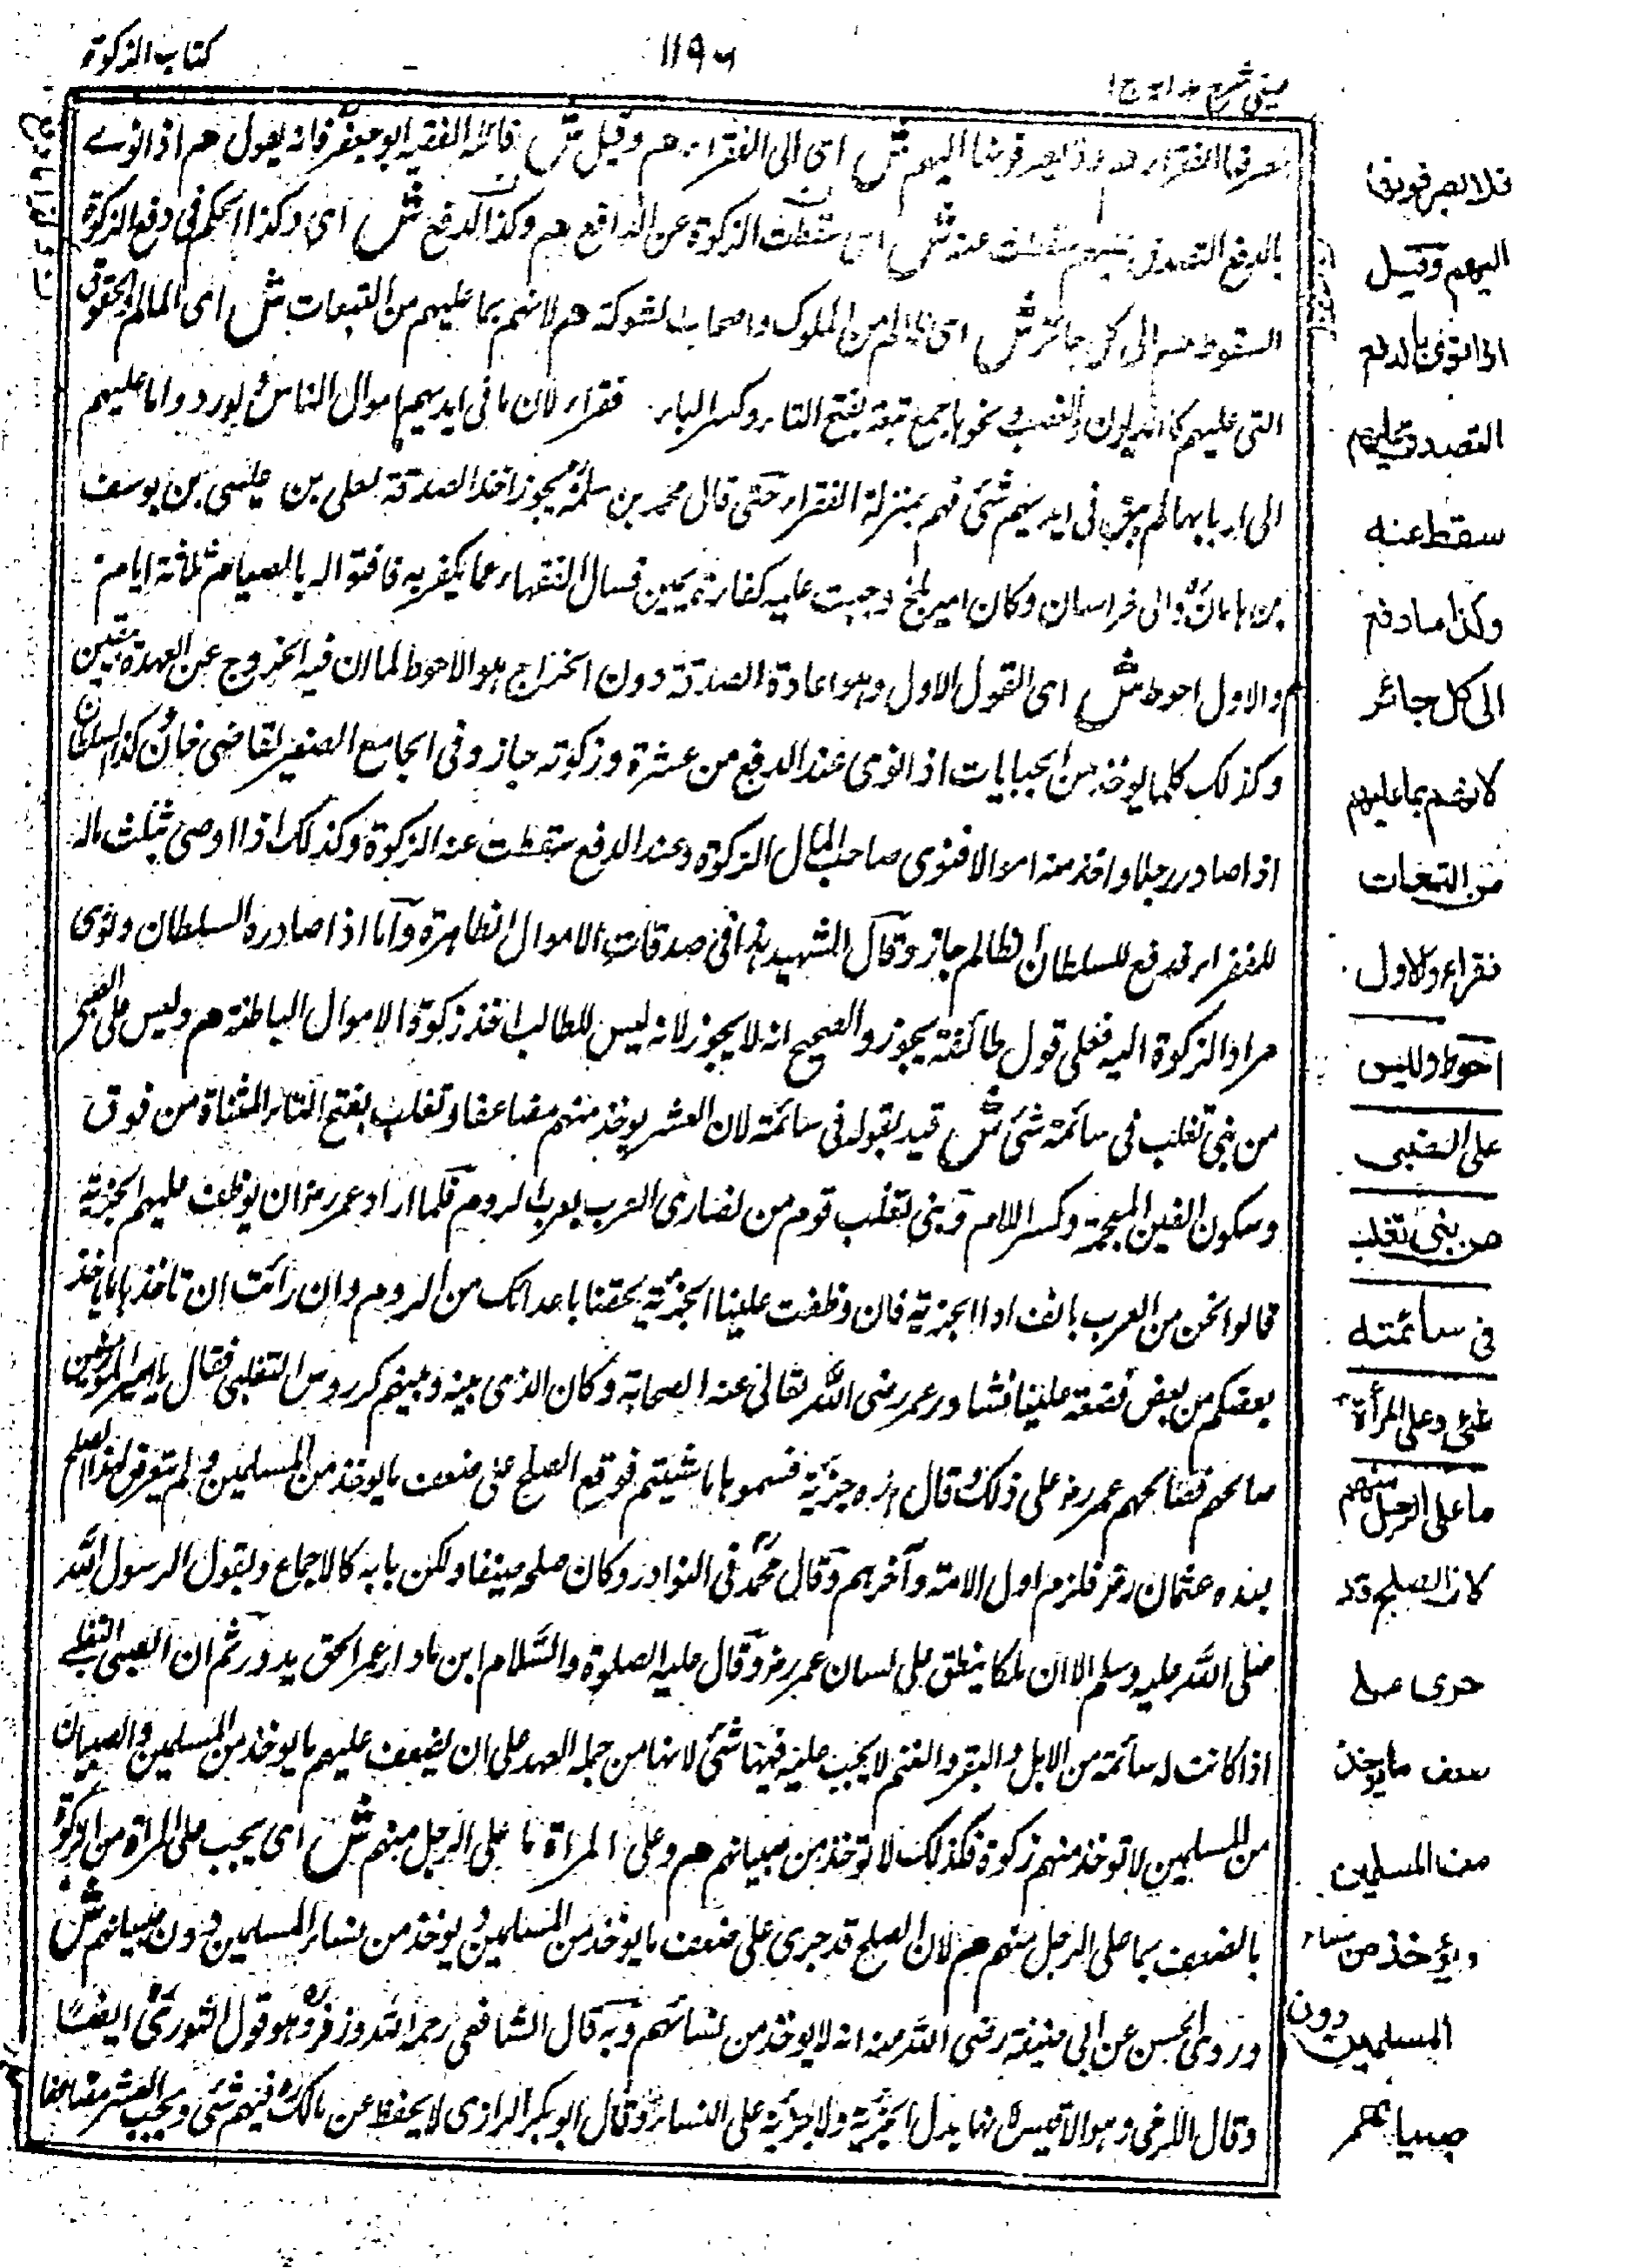 كتاب الزكوة
١١٩٦
عينى شرح هدايه ج١
مصرفها الفقراء ولا يصرفونها اليهم ش اى الى الفقراء هم وقيل ش قائله الفقيه ابو جعفر فانه يقول هم اذا نوے
بالدفع التصدق عليهم سقطت عنه ش اى سقطت الزكوة عن الدافع هم وكذا الدفع ش اى وكذا الحكم فى دفع الزكوة
السقوط هم الى كل جائر ش اى ظالم من الملوك واصحاب الشوكة هم لانهم بما عليهم من التبعات ش اى المظالم والحقوق
التى عليهم كالديون والغصب ونحوها جمع تبعة بفتح التاء وكسر الباء فقراء لان ما فى ايديهم اموال الناس ولو ردوا ما عليهم
الى اربابها لم يبق فى ايديهم شئ فهم بمنزلة الفقراء حتى قال محمد بن سلمة يجوز اخذ الصدقة لعلى بن عيسى بن يوسف
بن ماهان والى خراسان وكان امير بلخ وجبت عليه كفارة يمين فسأل الفقهاء عما يكفر به فافتوا له بالصيام ثلاثة ايام
هم والاول احوط ش اى القول الاول وهو اعادة الصدقة دون الخراج هو الاحوط لما ان فيه الخروج عن العهدة بيقين
وكذلك كلما يوخذ من الجبايات اذا نوى عند الدفع من عشرة وزكوته جاز وفى الجامع الصغير لقاضى خان وكذا السلطان
اذا صادر رجلا واخذ منه اموالا فنوى صاحب المال الزكوة عند الدفع سقطت عنه الزكوة وكذلك اذا اوصى بثلث ماله
للفقراء فدفع للسلطان الظالم جاز وقال الشهيد هذا فى صدقات الاموال الظاهرة وآما اذا صادره السلطان ونوى
مراد الزكوة اليه فعلى قول طائفة يجوز والصحيح انه لا يجوز لانه ليس للطالب اخذ زكوة الاموال الباطنة هم وليس على الصبى
من بنى تغلب فى سائمة شئ ش قيد بقوله فى سائمة لان العشر يوخذ منهم مضاعفا وتغلب بفتح التاء المثناة من فوق
وسكون الغين المعجمة وكسر اللام وبنى تغلب قوم من نصارى العرب بعرب الروم فلما اراد عمر رض ان يوظف عليهم الجزية
قالوا نحن من العرب نانف اداء الجزية فان وظفت علينا الجزية لحقنا باعدائك من الروم وان رائت ان تاخذ منا ما ياخذ
بعضكم من بعض تضعفه علينا فشاور عمر رضى الله تعالى عنه الصحابة وكان الذى بينه وبينهم كردوس التغلبى فقال يا امير المؤمنين
صالحهم فصالحهم عمر رض على ذلك وقال هذه جزية فسموها ما شئتم فوقع الصلح على ضعف ما يوخذ من المسلمين ولم يتعرض لهذا الصلح
بعده عثمان رض فلزم اول الامة وآخرهم وقال محمد فى النوادر وكان صلحه ضعيفا ولكن بابه كالاجماع ولقول الرسول الله
صلى الله عليه وسلم الا ان ملكا ينطق على لسان عمر رض وقال عليه الصلوة والسلام اين ما دار عمر الحق يدور ثم ان الصبى التغلبے
اذا كانت له سائمة من الابل والبقر والغنم لا يجب عليه فيها شئ لانها من جملة العهد على ان يضعف عليهم ما يوخذ من المسلمين والصبيان
من المسلمين لا توخذ منهم زكوة فكذلك لا توخذ من صبيانهم هم وعلى المراة ما على الرجل منهم ش اى يجب على المراة من الزكوة
بالضعف بما على الرجل منهم هم لان الصلح قد جرى على ضعف ما يوخذ من المسلمين ويوخذ من نساء المسلمين دون صبيانهم ش
وروى الحسن عن ابى حنيفة رضى الله عنه انه لا يوخذ من نسائهم وبه قال الشافعى رحمه الله وزفر وهو قول الثورى ايضا
وقال الكرخى وهو الاقيس لانها بدل الجزية ولا جزية على النساء وقال ابو بكر الرازى لا يحفظ عن مالك فيهم شئ ويجب العشر مضاعفا
فلا يصرفونها
اليهم وقيل
اذا نوى بالدفع
التصدق عليهم
سقط عنه
وكذا ما دفع
الى كل جائر
لانهم بما عليهم
من التبعات
فقراء والاول
احوط وليس
على الصبى
من بنى تغلب
فى سائمته
شئ وعلى المرأة
ما على الرجل منهم
لان الصلح قد
جرى على
ضعف ما يوخذ
من المسلمين
ويؤخذ من نساء
المسلمين دون
صبيانهم